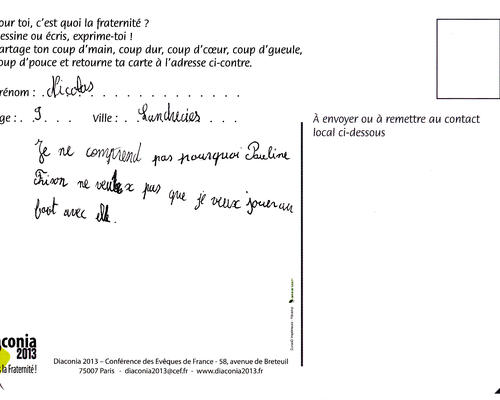 our toi, c'est quoi la fraternité ?
essine ou écris, exprime-toi !
artage ton coup d'main, coup dur, coup d'cœur, coup d'gueule,
oup d'pouce et retourne ta carte à l'adresse ci-contre.
rénom : Nicolas
ge : 9 Ville : Landrecies
À envoyer ou à remettre au contact
local ci-dessous
Je ne comprend pas pourquoi Pauline
Frison ne veux pas que je veux jouer au
foot avec elle.
aconia
2013
la Fraternité !
Diaconia 2013 – Conférence des Evêques de France - 58, avenue de Breteuil
75007 Paris - diaconia2013@cef.fr - www.diaconia2013.fr